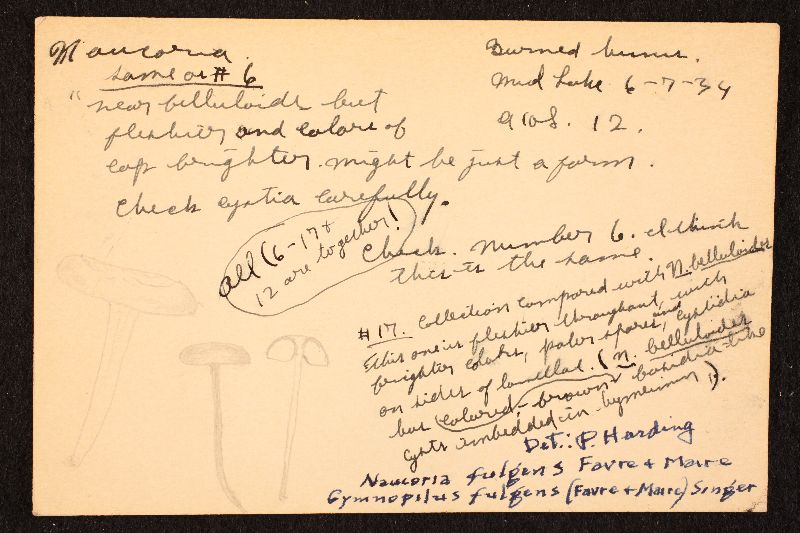 Naucoria.
same as # 6
Burned humus.
Mud Lake 6-7-34
gros. 12.
"near belluloides but
fleshier and colors of
cap brighter. might be just a form.
Check cystia carefully.
all (6-17+
12 are together!
Check. Number 6. I think
this is the same.
#17. Collection compared with N. belluloides
this one is fleshier throughout, with
brighter colors, paler spores, and cystidia
on sides of lamellae. (N. belluloides
has colored-brown basidia-like
cysts imbedded in hymenium).
Det.: P. Harding
Naucoria fulgens Favre + Maire
Gymnopilus fulgens (Favre + Maire) Singer